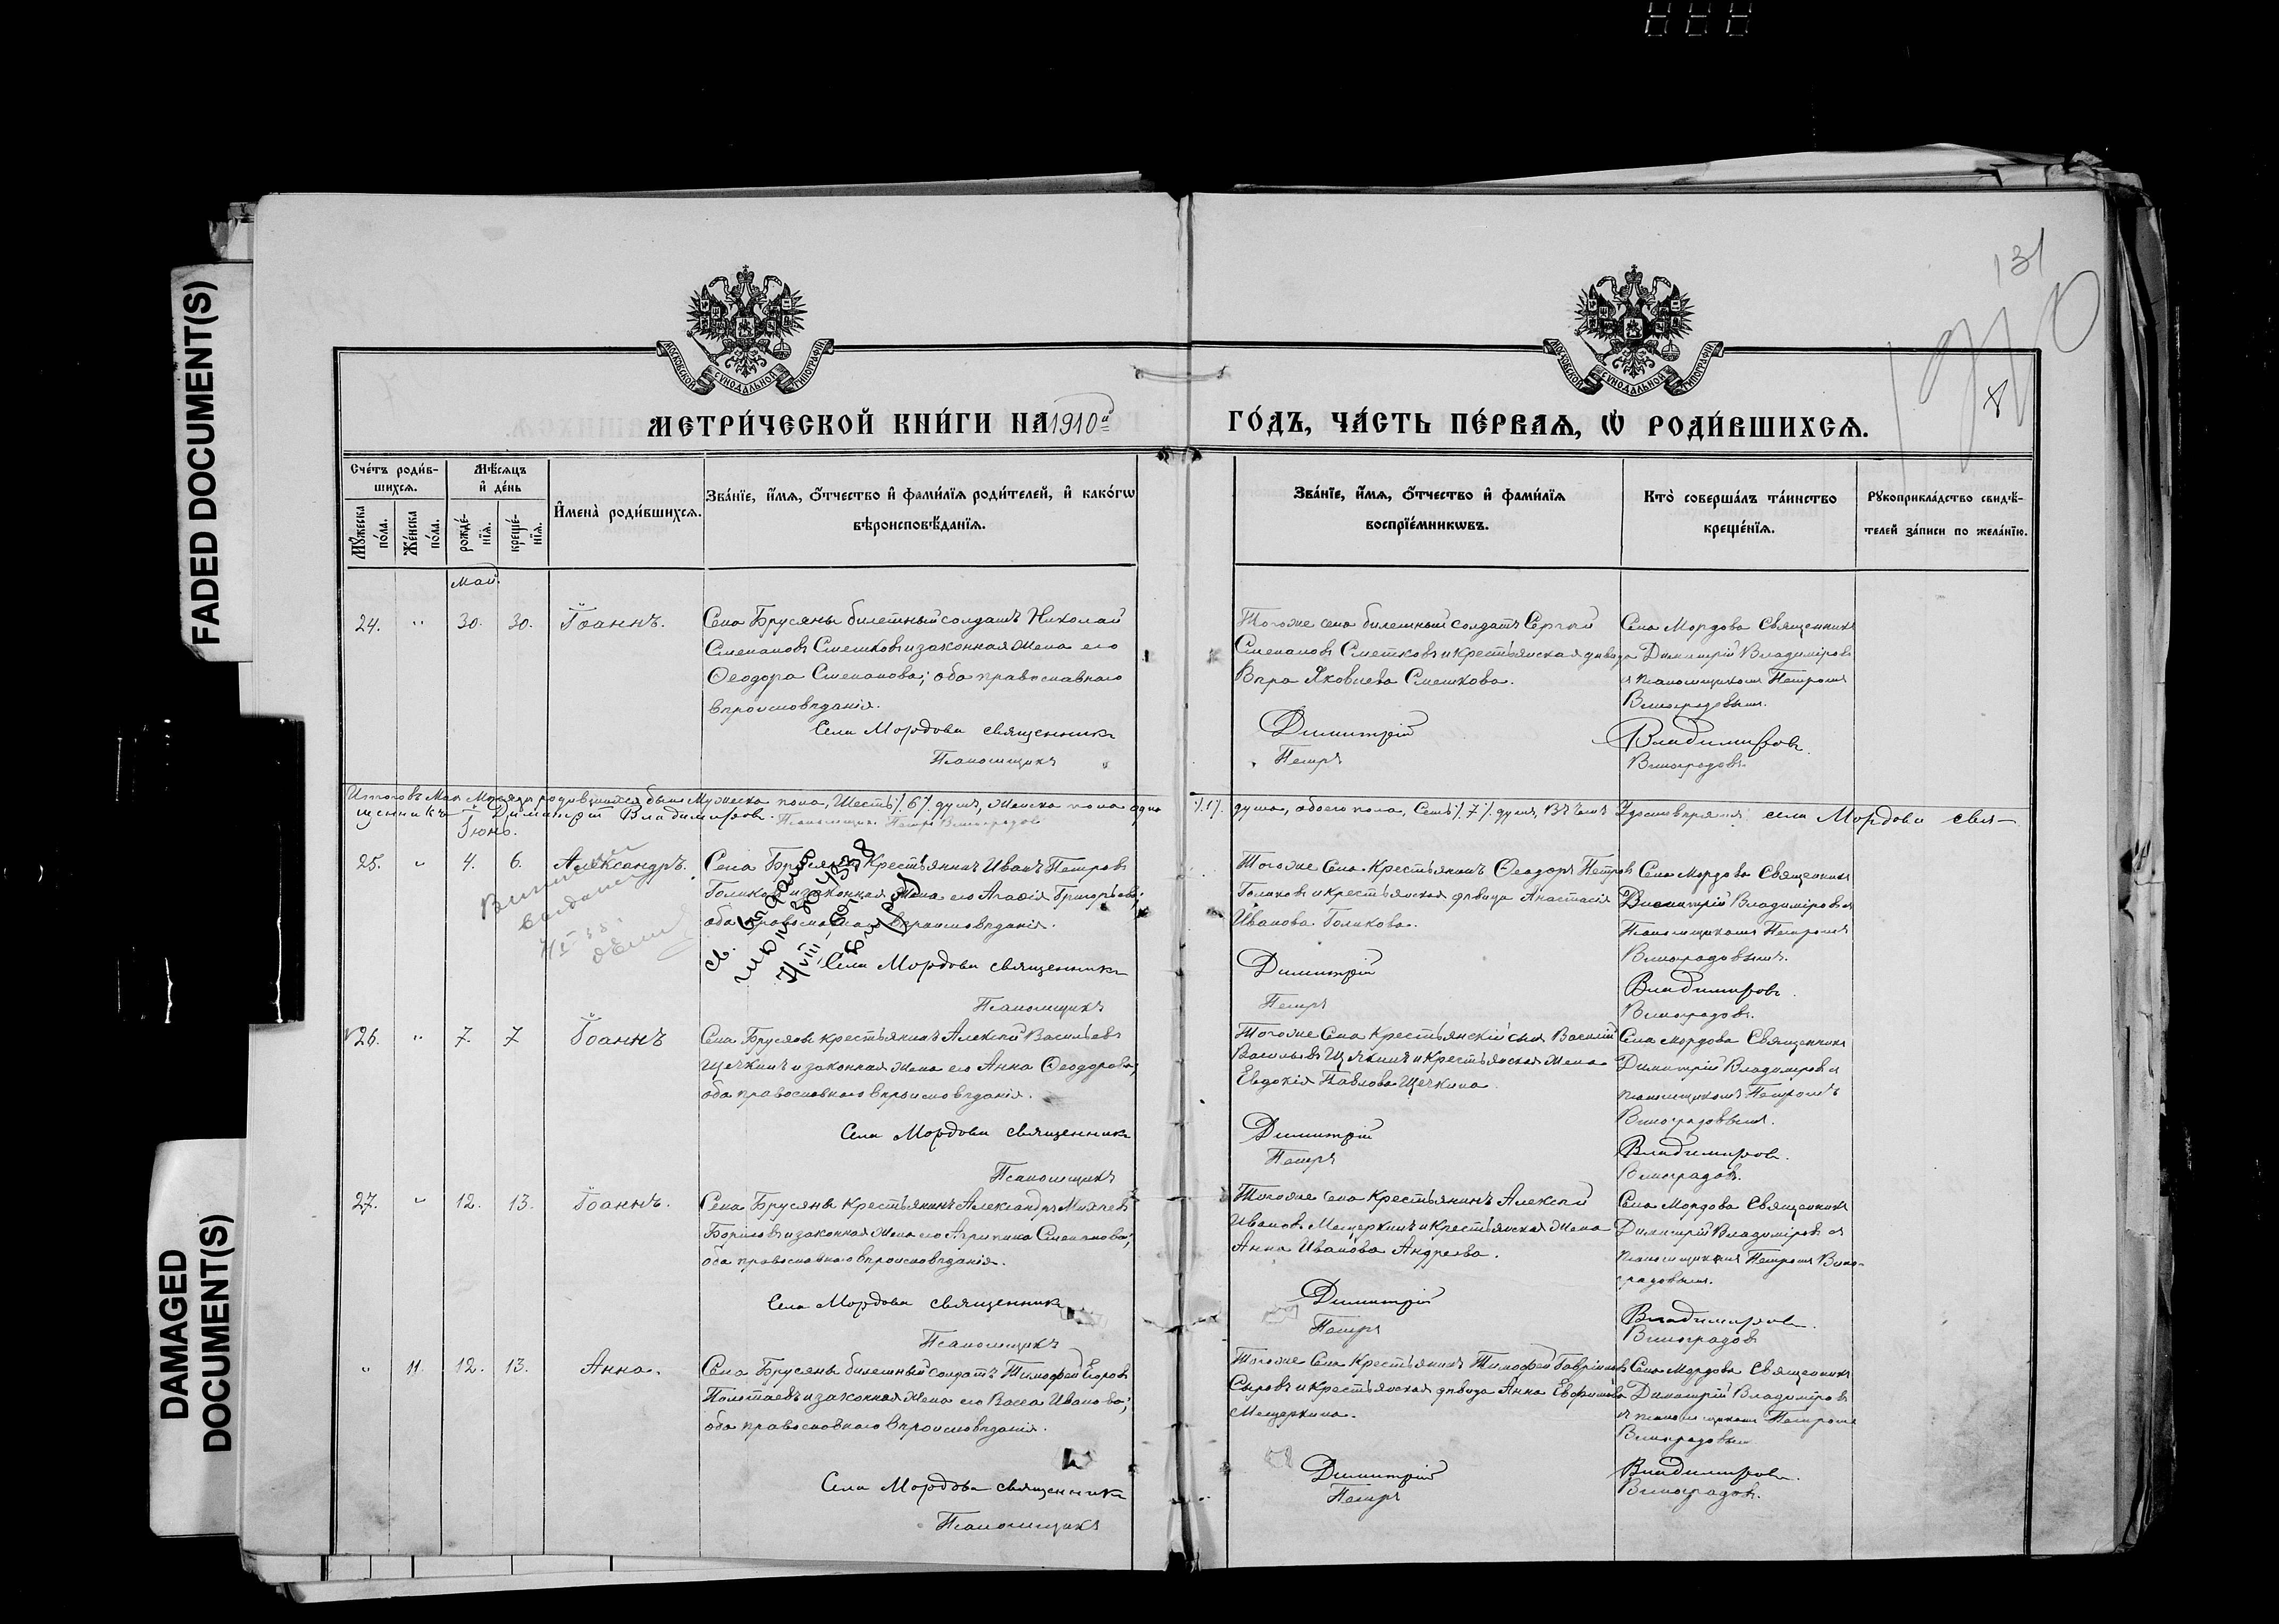 FADED DOCUMENT(S)
DAMAGED DOCUMENT(S)
131
1910
8
МОСКОВСКОЙ СУНОДАЛЬНОЙ ТИПОГРАФІИ
МОСКОВСКОЙ СУНОДАЛЬНОЙ ТИПОГРАФІИ
МЕТРИ́ЧЕСКОЙ КНИ́ГИ НА 1910й
ГО́ДЪ, ЧА́СТЬ ПЕ́РВАѦ, Ѡ РОДИ́ВШИХСѦ.
Сче́тъ роди́в-
шихсѧ.
Мꙋжеска по́ла.
Же́нска по́ла.
Мѣ́сѧцъ
и де́нь
рожде́-
нїѧ.
креще́-
нїѧ.
Имена̀ роди́вшихсѧ.
Зва́нїе, и́мѧ, о́тчество и фами́лїѧ роди́телей, и како́гѡ
вѣроисповѣ́данїѧ.
Зва́нїе, и́мѧ, о́тчество и фами́лїѧ
воспрїе́мникѡвъ.
Кто̀ соверша́лъ та́инство
креще́нїѧ.
Рꙋкоприкла́дство свидѣ́-
телей за́писи по жела́нїю.
Май.
24. " 30. 30. Іоаннъ.
Села Брусяны билетный солдатъ Николай
Степановъ Сметковъ и законная жена его
Ѳеодора Степанова; оба православнаго
вѣроисповѣданія.
Села Мордова священникъ
Псаломщикъ
Того же села билетный солдатъ Сергѣй
Степановъ Сметковъ и крестьянская дѣвица
Вѣра Яковлева Сметкова.
Димитрій
Петръ
Села Мордова Священникъ
Димитрій Владиміровъ
и псаломщикомъ Петромъ
Виноградовымъ.
Владимировъ.
Виноградовъ.
Итого въ Маѣ Мѣсяцѣ родившихся было Мужеска пола, Шесть /6/ душъ, Женска пола одна /1/ душа, обоего пола, Семь /7/ душъ, Въ чемъ Удостовѣряемъ: села Мордова свя-
щенникъ Димитрій Владимировъ. Псаломщикъ Петръ Виноградовъ
Іюнь.
25. " 4. 6. Александръ.
Села Брусяны Крестьянинъ Иванъ Петровъ
Голиковъ и законная жена его Агаѳія Григорьева;
оба православнаго вѣроисповѣданія.
Села Мордова священникъ
Псаломщикъ
Того же Села Крестьянинъ Ѳеодоръ Петровъ
Голиковъ и крестьянская дѣвица Анастасія
Иванова Голикова.
Димитрій
Петръ
Села Мордова Священникъ
Димитрій Владиміровъ и
Псаломщикомъ Петромъ
Виноградовымъ.
Владимировъ.
Виноградовъ.
26. " 7. 7 Іоаннъ
Села Брусяны крестьянинъ Алексѣй Васильевъ
Щечкинъ и законная жена его Анна Ѳеодорова;
оба православнаго вѣроисповѣданія.
Села Мордова священникъ
Псаломщикъ
Того же Села Крестьянскій сынъ Василій
Васильевъ Щечкинъ и Крестьянская жена
Евдокія Павлова Щечкина.
Димитрій
Петръ
Села Мордова Священникъ
Димитрій Владиміровъ и
псаломщикомъ Петромъ
Виноградовымъ.
Владимировъ.
Виноградовъ.
27. " 12. 13. Іоаннъ.
Села Брусяны Крестьянинъ Александръ
и законная жена его Агрипина Степанова;
оба православнаго вѣроисповѣданія.
Села Мордова священникъ
Псаломщикъ
Того же Села Крестьянинъ Алексѣй
Ивановъ Мещеркинъ и Крестьянская жена
Анна Иванова Андреева.
Димитрій
Петръ
Села Мордова Священникъ
Димитрій Владиміровъ и
псаломщикомъ Петромъ Вино-
градовымъ.
Владимировъ.
Виноградовъ
" 11. 12. 13. Анна.
Села Брусяны билетный солдатъ Тимофей Егоровъ
Полотаевъ и законная жена его Васса Иванова;
оба православнаго вѣроисповѣданія.
Села Мордова священникъ
Псаломщикъ
Того же Села Крестьянинъ Тимофей Гавріиловъ
Сыровъ и Крестьянская дѣвица Анна Евфимова
Мещеркина.
Димитрій
Петръ
Села Мордова Священникъ
Димитрій Владиміровъ
и псаломщикомъ Петромъ
Виноградовымъ
Владимировъ.
Виноградовъ.